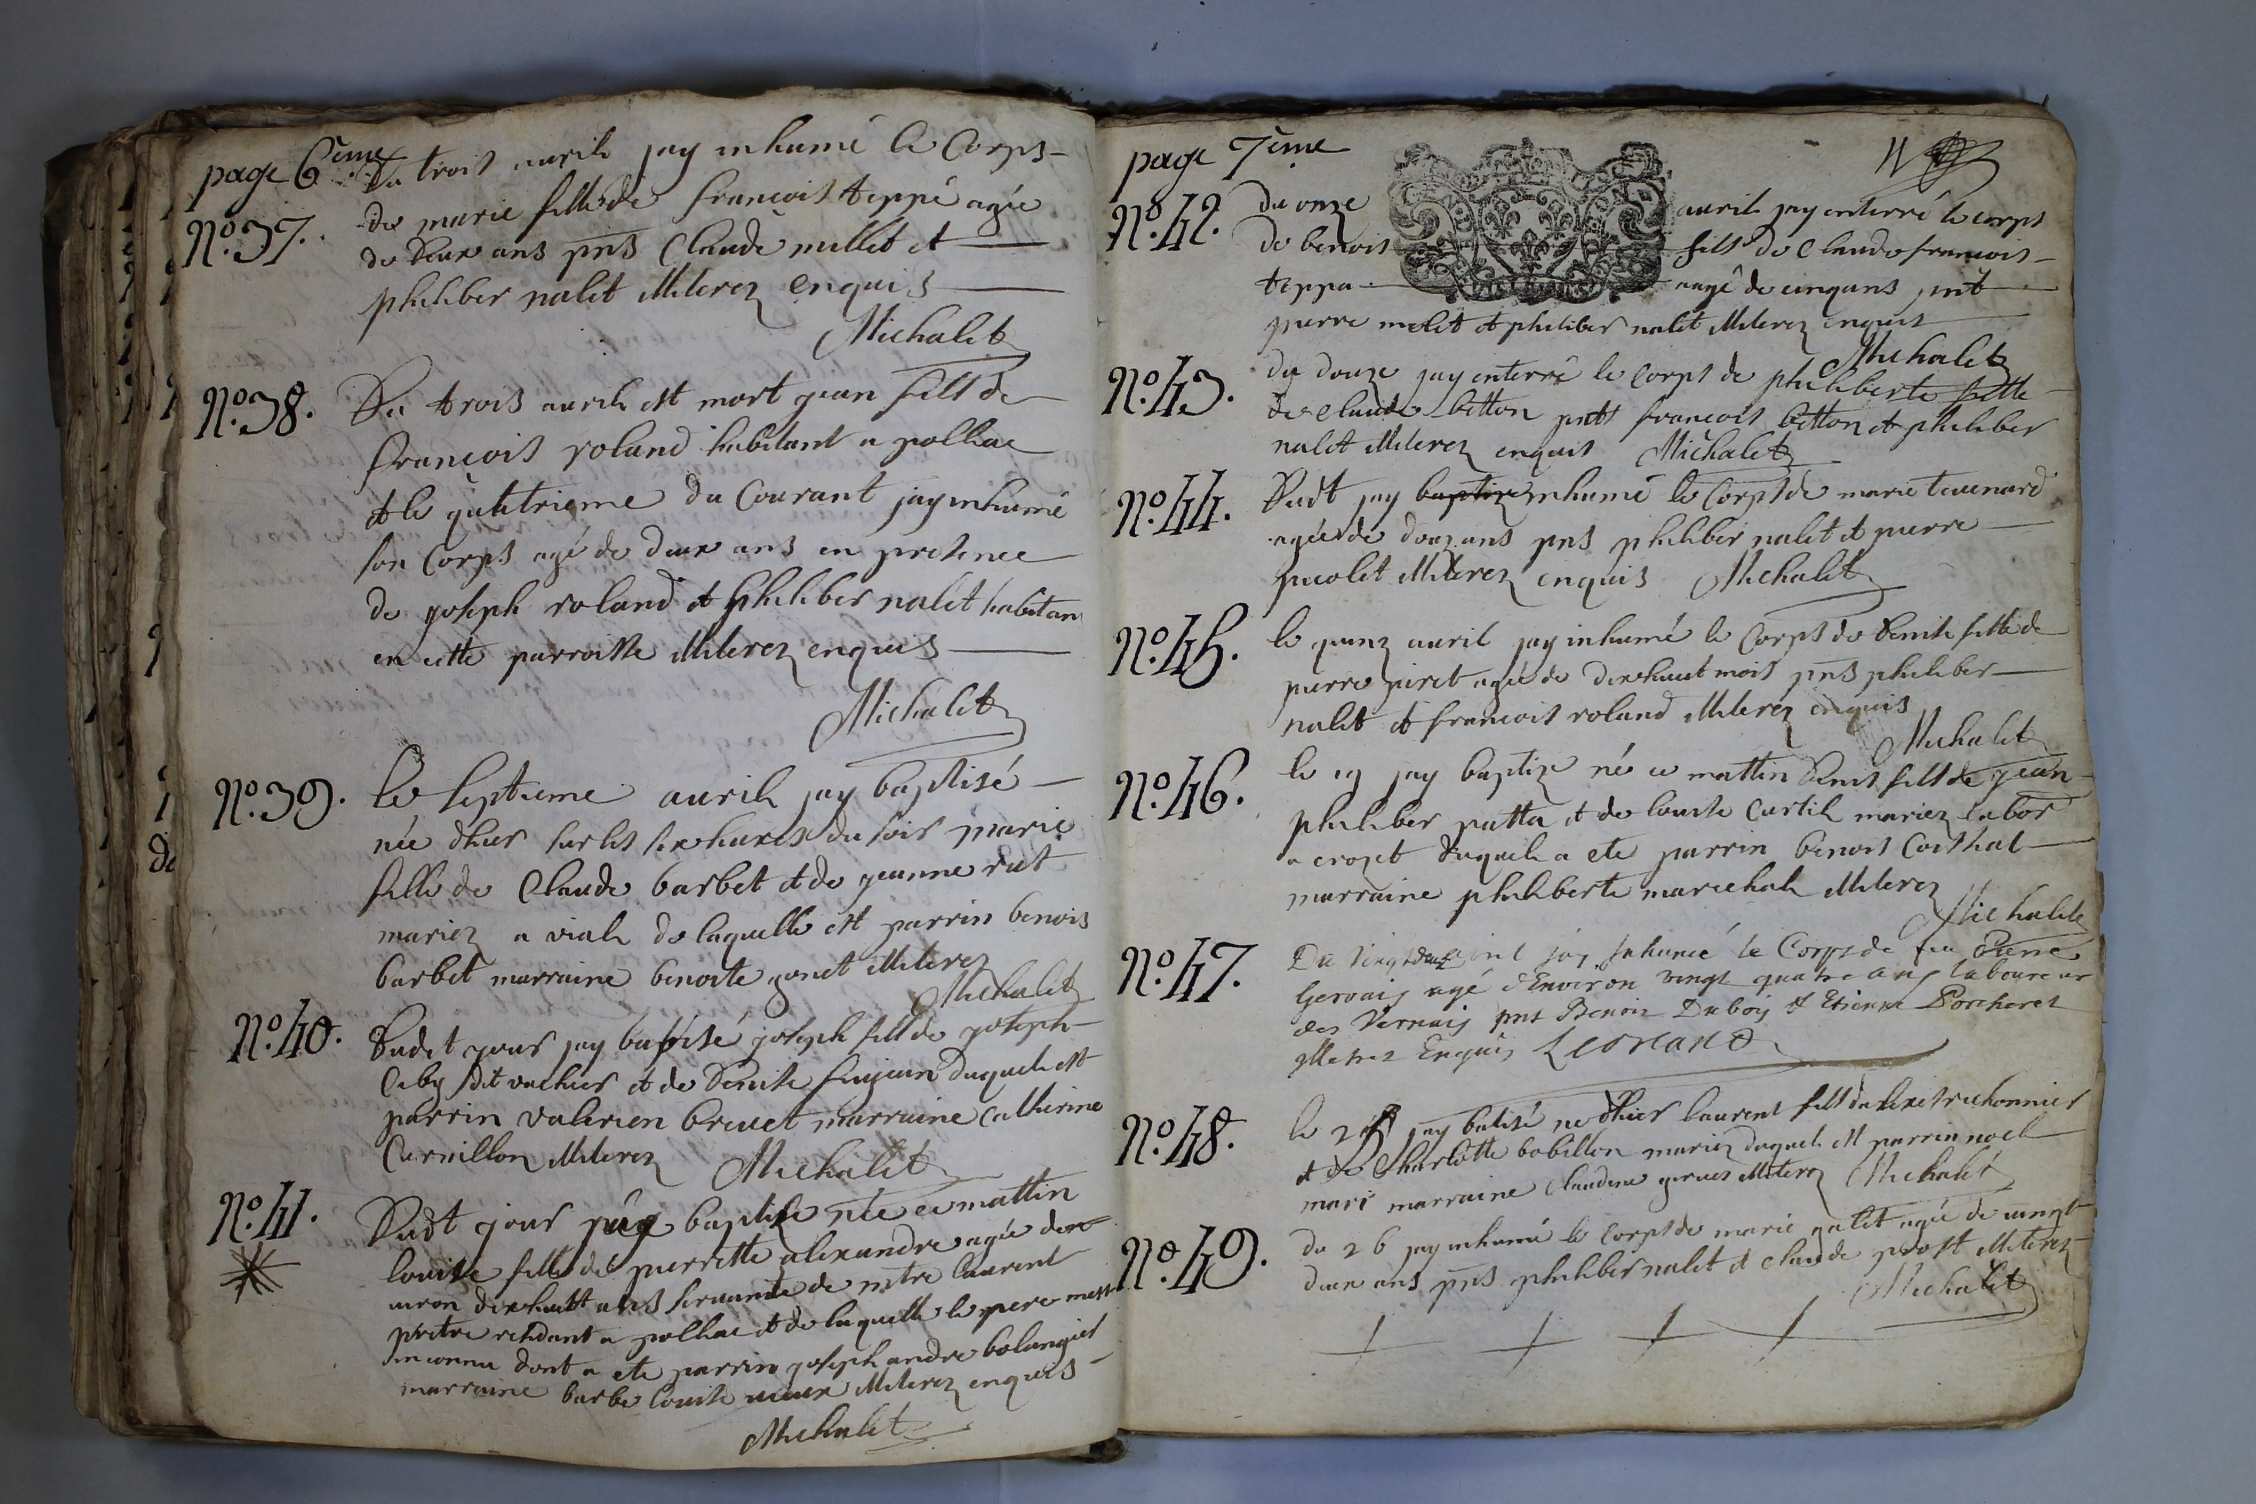 page 6ème
N°.37.
Du trois aurih jay inhumé le Corps
de marie fille de francois teppé agée
de deux ans pñs Claude millet et
philiber nalet illiterez enquis
Michalet
N°.38.
Du trois aurih est mort jean fils de
francois roland habitant a polliac
et le quatrieme du Courant jay inhumé
son Corps agé de deux ans en presence
de joseph roland et philiber nalet habitan
en cette parroisse illiterez enquis
Michalet
N°.39.
Le septieme aurih jay baptisé
née dhier sur les six heures du soir marie
fille de Claude barbet et de jeanne rut
mariez a viale de laquelle est parrin benois
barbet marraine benoite gonet illiterez
Michalet
N°.40.
Dudet jour jay baptisé joseph fils de joseph
dit vachier et de Denise duquel est
parrin valerien breuet marraine Catherine
Curnillon illiterez Michalet
N°.41.
Dudt jour jay baptise née ce mattin
louise fille de pierrette alexandre agée den
uiron dixhuit ans seruante de mtre laurent
pretre residant a polliac et de laquelle le pere mest
inconnu dont a ete parrin joseph andre bolangier
marraine barbe louise illiterez enquis
Michalet
page 7ème
N°.42.
du onze aurih jay enterré le corps
de benois fils de Claude francois
teppa aagé de cinq ans pnt
pierre molet et philiber nalet illiterez enquis
Michalet
N°.43.
du douze jay enterré le Corps de philiberte fille
de claude bitton pnts francois bitton et philiber
nalet illiterez enquis Michalet
N°.44.
Dudt jay baptize inhumé le Corps de marie teuenard
agée de douz ans pns philiber nalet et pierre
picolet illiterez enquis Michalet
N°.45.
le quinz auril jay inhumé le Corps de Denise fille de
pierre piret agée de dixhuit mois pñs philiber
nalet et francois roland illiterez enquis
Michalet
N°.46.
le 19 jay baptize né ce mattin Denis fils de jean
philiber patta et de louise Curtih mariez labor
a crozet duqueh a ete parrin benois Corthal
marraine philiberte mariehal illiterez
Michalet
N°.47.
Du Vingtdeux jay Inhumé le Corps de feu Pierre
Gervais agé d'Environ vingt quatre ans laboureur
des Vernais pnt Benoit Dubois & Etienne Porcheret
illetrez Enquis Leonard
N°.48.
le jay batisé ne dhier laurent fils
et de Charlotte bobillon mariez duqueh est parrin noel
mari marraine Claudine illiterez Michalet
N°.49.
du 26 jay inhumé le Corps de marie galet agée de uingt
deux ans pñs philiber nalet et claude prost illiterez
Michalet